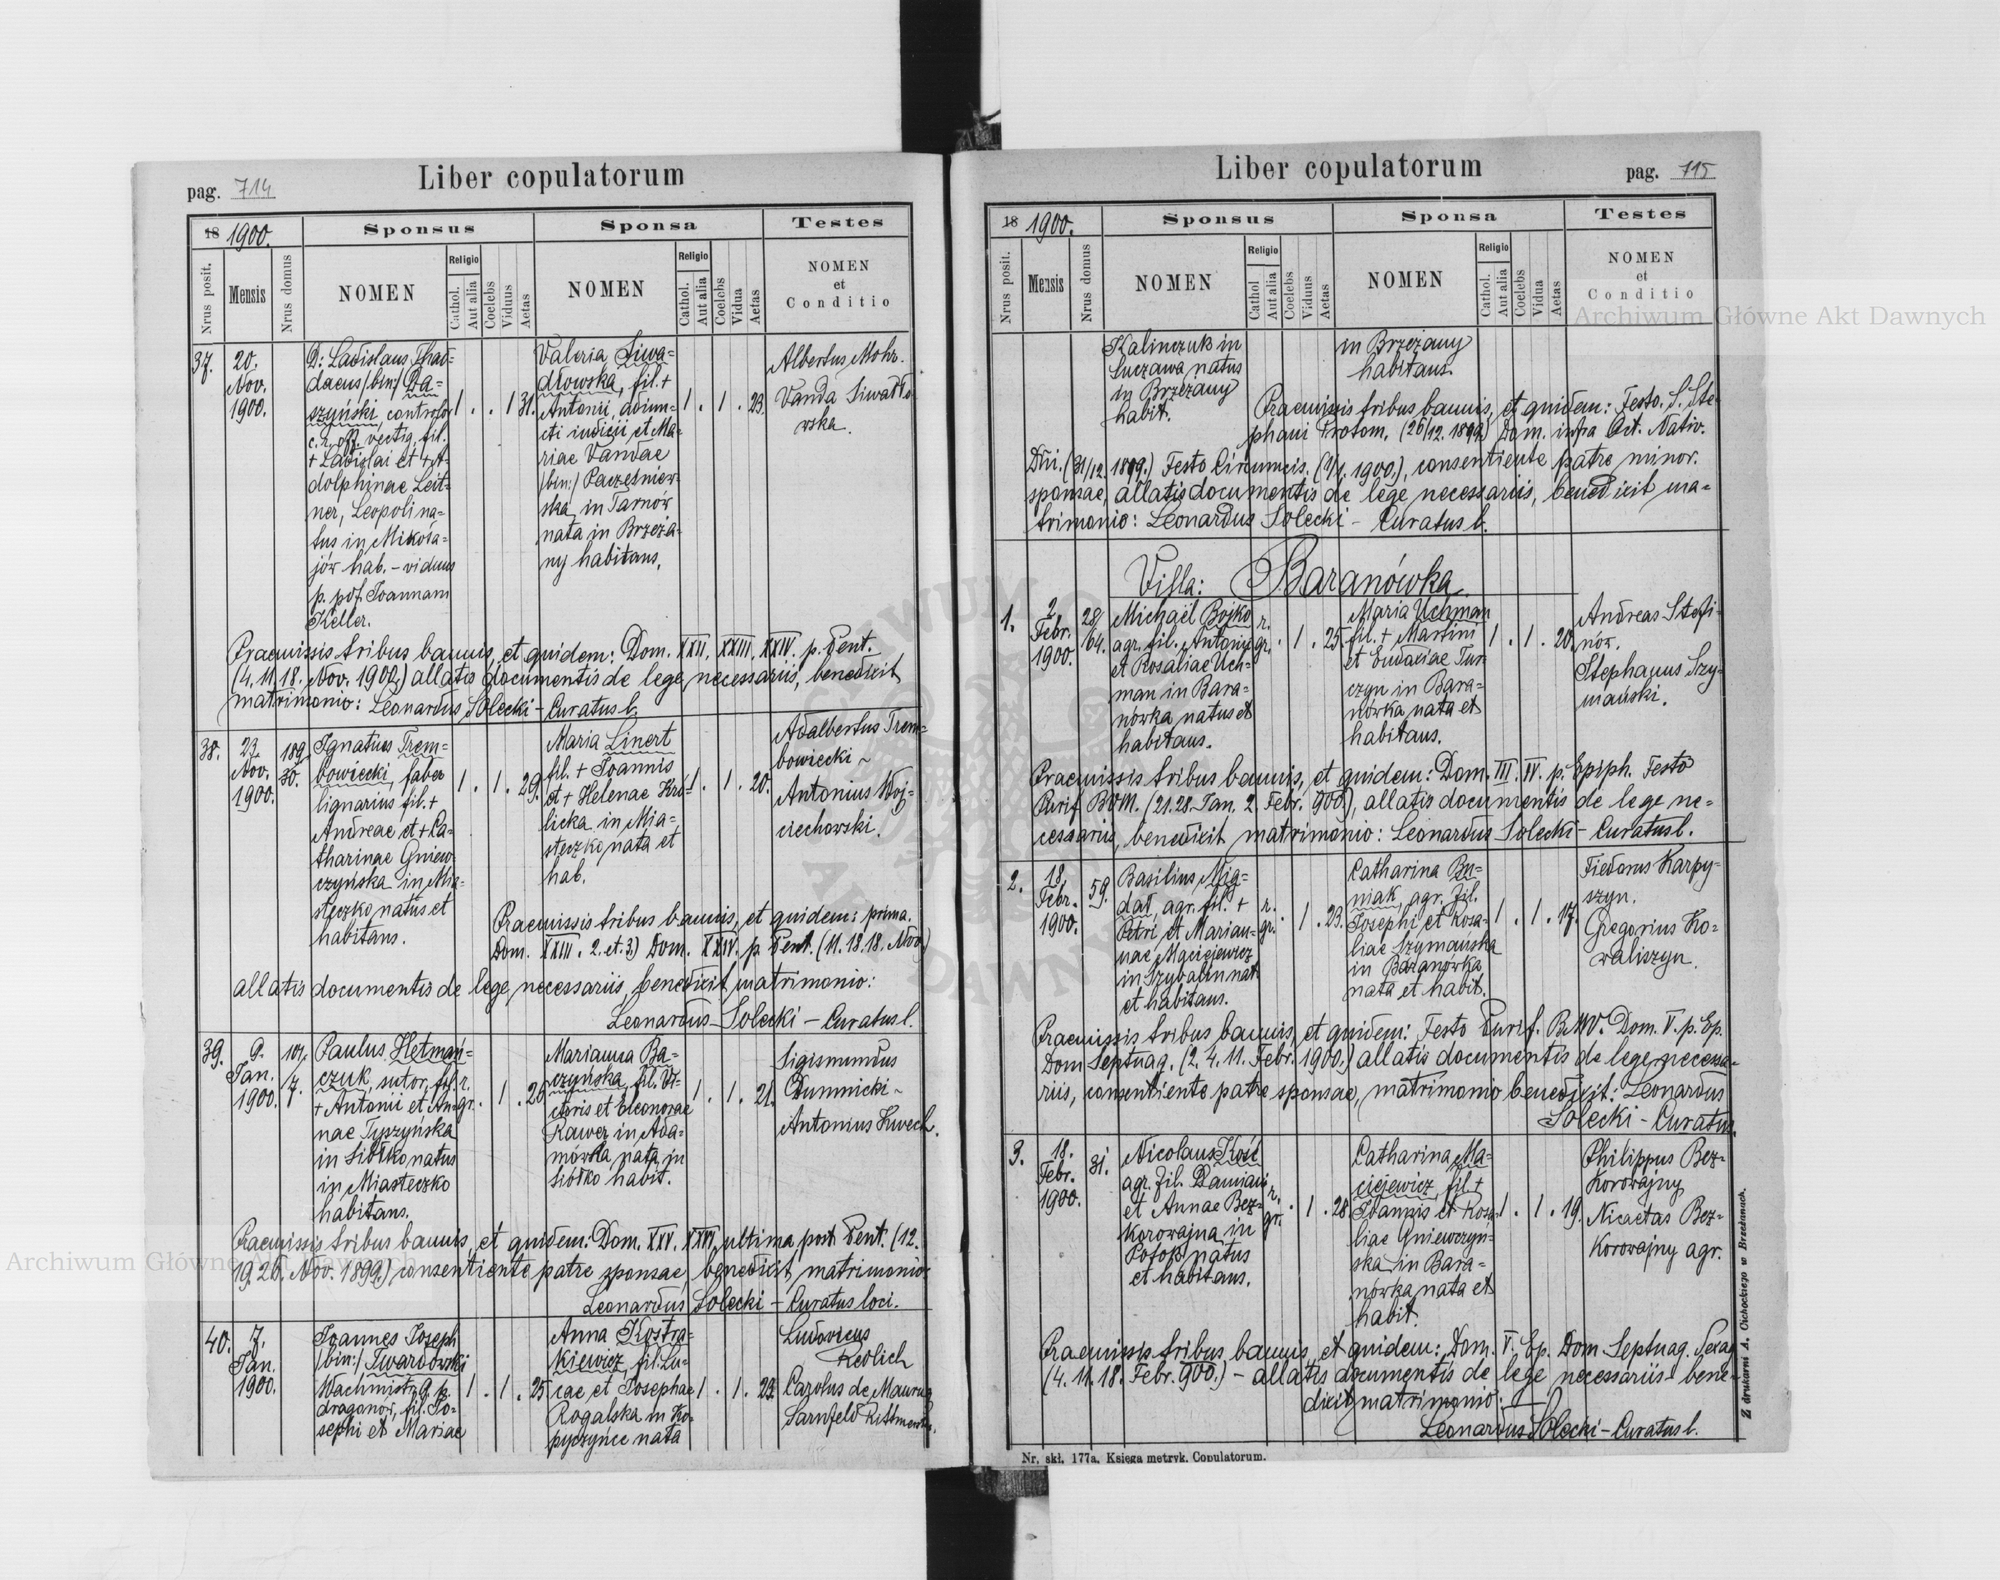 Liber copulatorum
pag. 714
18 1900.
Sponsus
Sponsa
Testes
Nrus posit.
Mensis
Nrus domus
NOMEN
Religio
Cathol.
Aut alia
Coelebs
Viduus
Aetas
NOMEN
Religio
Cathol.
Aut alia
Coelebs
Vidua
Aetas
NOMEN
et
Conditio
37.
20.
Nov.
1900.
D: Ladislaus Thad-
daeus /bin:/ Da-
szyński, controlor
c. r. off. vectig. fil.
+ Ladislai et + A-
dolphinae Leit-
ner, Leopoli na-
tus in Mikoła-
jów hab. - viduus
p. pof. Joannam
Keller.
1 . . 1 31.
Valeria Siwa-
dłowska, fil. +
Antonii, adiun-
cti iudicii et Ma-
riae Vandae
/bin:/ Paczesniow-
ska in Tarnów
nata in Brzeża-
ny habitans.
1 . 1 . 23.
Albertus Mohr.
Vanda Siwadło-
wska.
Praemissis tribus bannis, et quidem: Dom. XXII. XXIII. XXIV. p. Pent.
(4. 11. 18. Nov. 190.) allatis documentis de lege necessariis, benedixit
matrimonio: Leonardus Solecki - Curatus l.
38.
23.
Nov.
1900.
189/
30.
Ignatius Trem-
bowiecki, faber
lignarius fil. +
Andreae et + Ca-
tharinae Gniew-
czyńska in Mia-
steczko natus et
habitans.
1 . 1 . 29.
Maria Linert
fil. + Joannis
et + Helenae Kró-
licka in Mia-
steczko nata et
hab.
1 . 1 . 20.
Adalbertus Trem-
bowiecki ~
Antonius Woj-
ciechowski.
Praemissis tribus bannis, et quidem: prima.
Dom. XXIII. 2. et. 3.) Dom. XXIV. p. Pent. (11. 18. 18. Nov.)
allatis documentis de lege necessariis, benedixit matrimonio:
Leonardus - Solecki - Curatus l.
39.
9.
Jan.
1900.
107/
7.
Paulus Hetmań-
czuk, sutor, fil.
+ Antonii et An-
nae Tyszyńska
in Siółko natus
in Miasteczko
habitans.
r.
gr. . 1 . 26
Marianna Ba-
czyńska, fil. Vi-
ctoris et Eleonorae
Kawer in Ada-
mówka nata in
Siółko habit.
1 . 1 . 21.
Sigismundus
Dumnicki ~
Antonius Kwech.
Praemissis tribus bannis, et quidem: Dom. XXV. XXVI. ultima post Pent. (12.
19. 26. Nov. 1899.) consentiente patre sponsae, benedixit matrimonio:
Leonardus Solecki - Curatus loci.
40.
7.
Jan.
1900.
Joannes Joseph
/bin:/ Twardowski
Wachmistr 9. p.
dragonor, fil. Jo-
sephi et Mariae
1 . 1 . 25
Anna Kostra-
kiewicz, fil. Lu-
cae, et Josephae
Rogalska in Ko-
pyczyńce nata
1 . 1 . 22.
Ludovicus
Redlich
Carolus de
Sarnfeld
Liber copulatorum
pag. 715
18 1900.
Sponsus
Sponsa
Testes
Nrus posit.
Mensis
Nrus domus
NOMEN
Religio
Cathol
Aut alia
Coelebs
Viduus
Aetas
NOMEN
Religio
Cathol.
Aut alia
Coelebs
Vidua
Aetas
NOMEN
et
Conditio
Kalinczuk in
Suczawa natus
in Brzeżany
habit.
in Brzeżany
habitans.
Praemissis tribus bannis, et quidem: Festo. S. Ste-
phani Protom. (26/12. 1899.) Dom. infra Oct. Nativ.
Dñi. (31/12. 1899.) Festo Circumcis. (1/1. 1900.), consentiente patre minor.
sponsae, allatis documentis de lege necessariis, benedixit ma-
trimonio: Leonardus Solecki - Curatus l.
Villa: Baranówka.
1.
2
Febr.
1900.
28/
64.
Michaël Bojko
agr. fil. Antonii
et Rosaliae Uch-
man in Bara-
nówka natus et
habitans.
r.
gr. . 1 . 25.
Maria Uchman
fil. + Martini
et Eudoxiae Tur-
czyn in Bara-
nówka nata et
habitans.
1 . 1 . 20.
Andreas Stefi-
nów.
Stephanus Szy-
mański.
Praemissis tribus bannis, et quidem: Dom. III. IV. p. Epiph. Festo
Purif. BVM. (21. 28. Jan. 2. Febr. 900.), allatis documentis de lege ne-
cessariis, benedixit matrimonio: Leonardus Solecki - Curatus l.
2.
18.
Febr.
1900.
59.
Basilius Mig-
dal, agr. fil. +
Petri et Marian-
nae Maciejewicz
in Szybalin nat.
et habitans.
r.
gr. . 1 . 23.
Catharina Bu-
niak, agr. fil.
Josephi et Rosa-
liae Szymańska
in Baranówka
nata et habit.
1 . 1 . 17.
Fiedorus Karpy-
szyn.
Gregorius Ko-
waliszyn.
Praemissis tribus bannis, et quidem: Festo Purif. BMV. Dom. V. p. Ep.
Dom Septuag. (2. 4. 11. Febr. 1900.) allatis documentis de lege necessa-
riis, consentiente patre sponsae, matrimonio benedixit: Leonardus
Solecki - Curatus.
3.
18.
Febr.
1900.
31.
Nicolaus Kość
agr. fil. Damiani
et Annae Bez-
korowajna in
Potok natus
et habitans.
r.
gr. . 1 . 28
Catharina Ma-
ciejewicz, fil. +
Joannis et Rosa-
liae Gniewczyn-
ska in Bara-
nówka nata et
habit.
1 . 1 . 19.
Philippus Bez-
korowajny
Nicaetas Bez-
korowajny agr.
Praemissis tribus bannis, et quidem: Dom. V. Ep. Dom Septuag. Sexag.
(4. 11. 18. Febr. 900.) - allatis documentis de lege necessariis bene-
dixit matrimonio:
Leonardus Solecki - Curatus l.
Nr. skł. 177a. Księga metryk. Copulatorum.
Z drukarni A. Cichockiego w Brzeżanach.
Archiwum Główne Akt Dawnych
Archiwum Główne Akt Dawnych